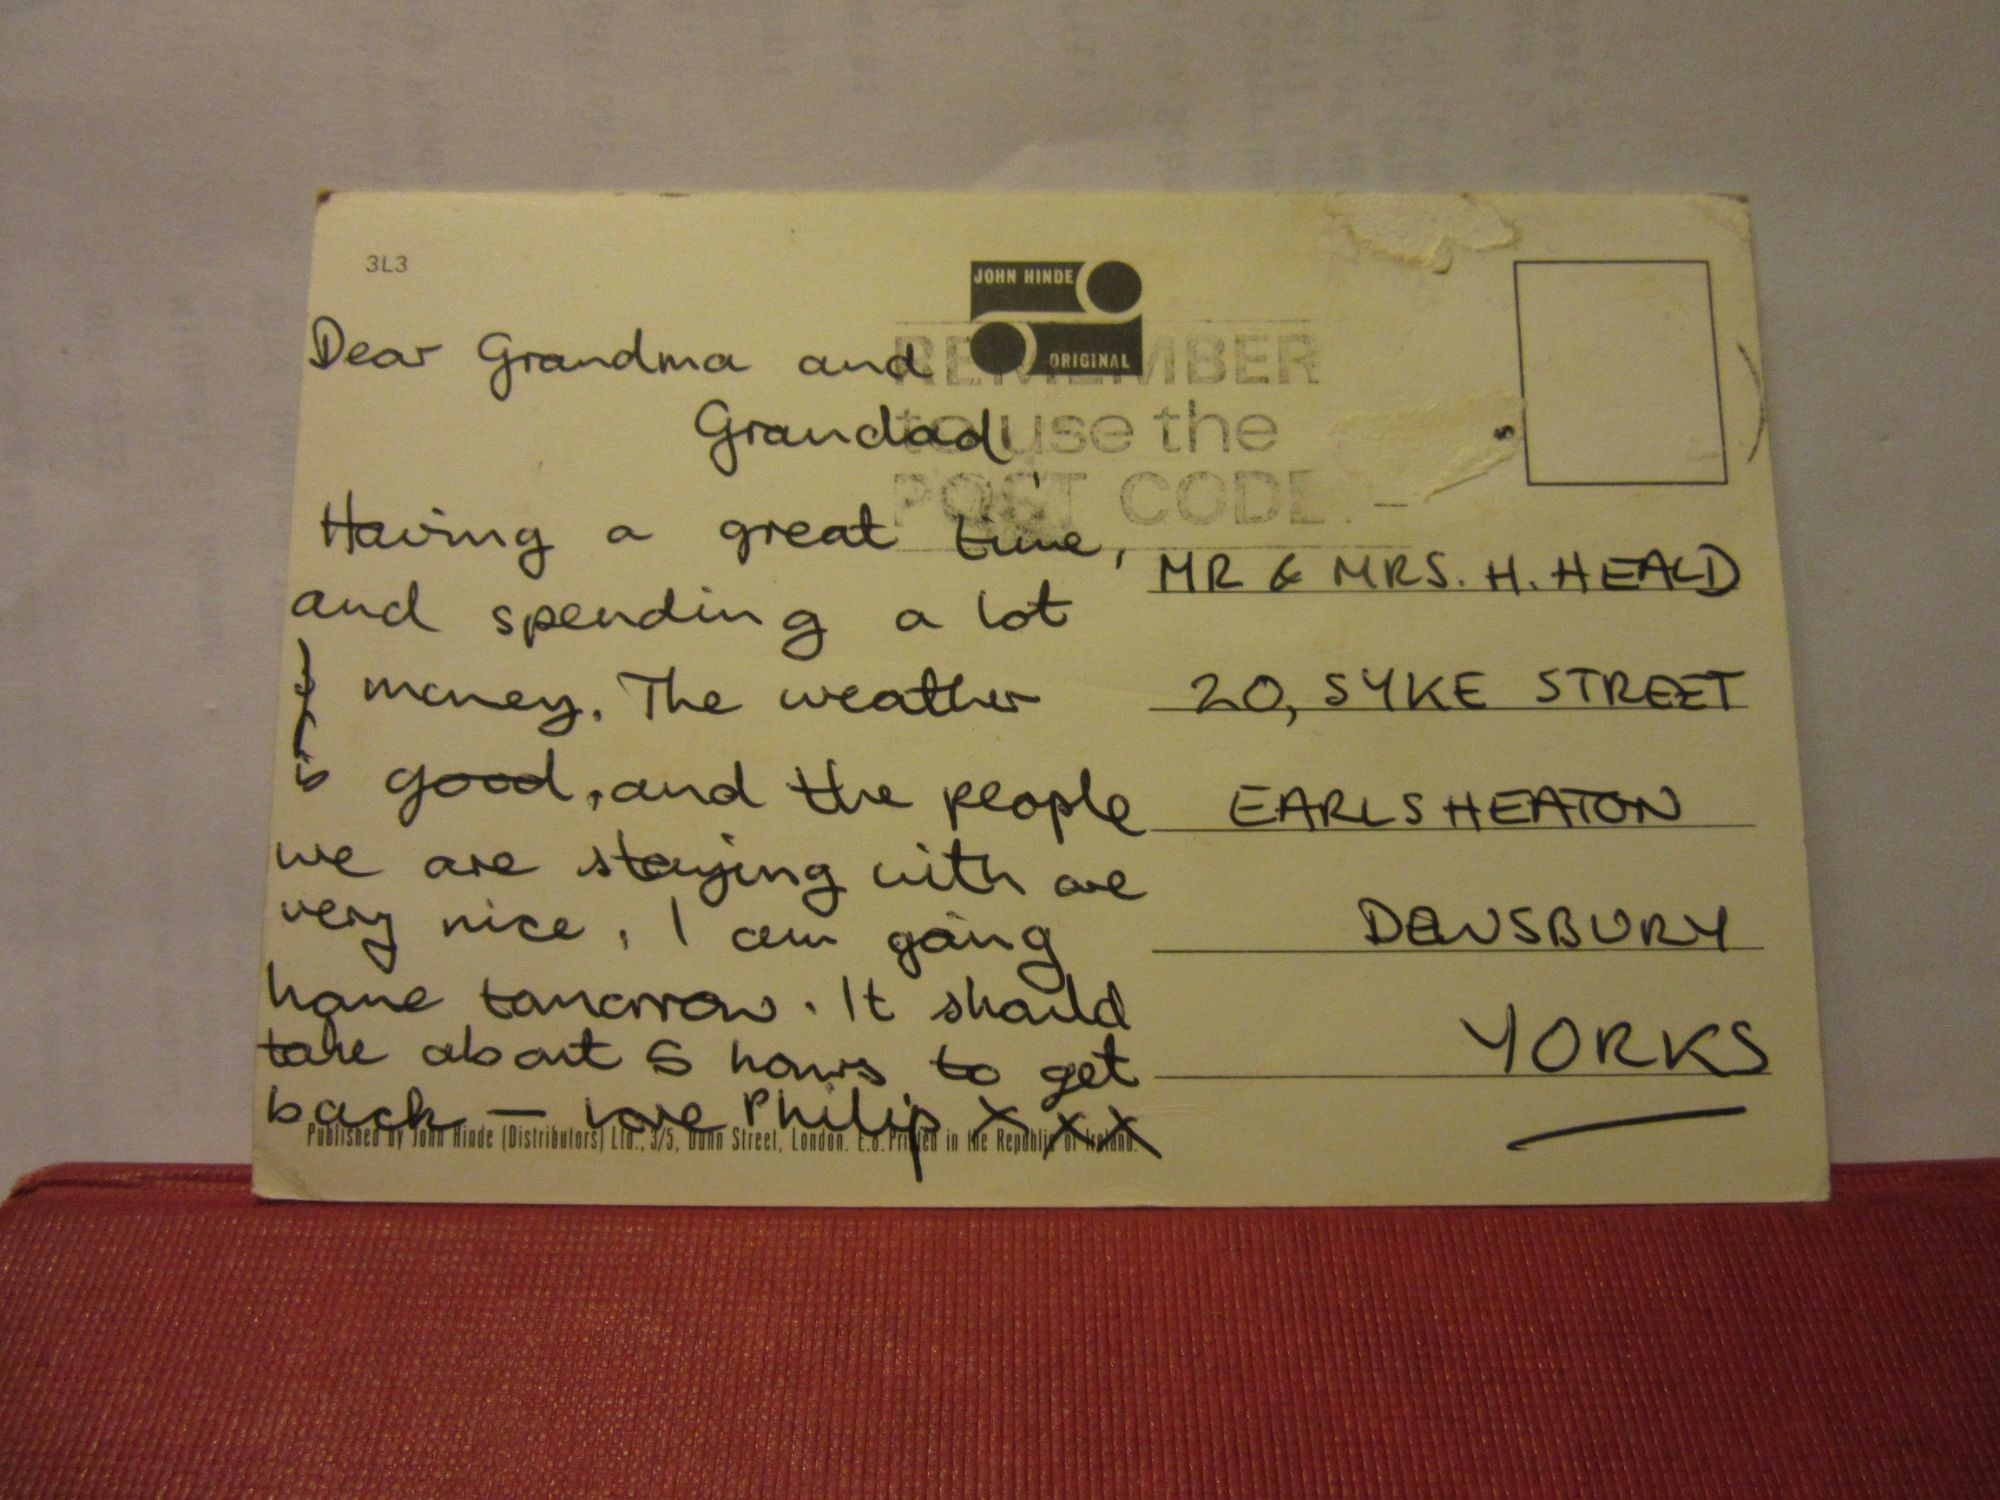 3L3
JOHN HINDE
ORIGINAL
REMEMBER
to use the
POST CODE -
Dear Grandma and
Grandad,
Having a great time,
and spending a lot
of money. The weather
is good, and the people
we are staying with are
very nice. I am going
home tomorrow. It should
take about 5 hours to get
back - love Philip XXX
MR & MRS. H. HEALD
20, SYKE STREET
EARLSHEATON
DEWSBURY
YORKS
Published by John Hinde (Distributors) Ltd., 3/5, Dunn Street, London. E.8. Printed in the Republic of Ireland.